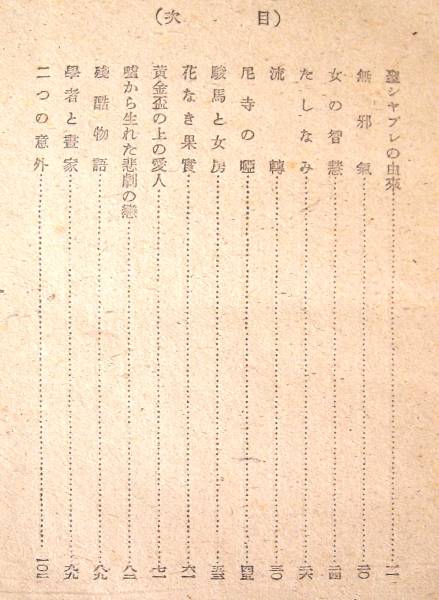 (目次)
聖シャプレの由來……一一
無邪氣……二〇
女の智慧……二四
たしなみ……二六
流轉……三〇
尼寺の啞……四五
駿馬と女房……五三
花なき果實……六一
黃金盃の上の愛人……七一
嘘から生れた悲劇の戀……八二
殘酷物語……八九
學者と畫家……九九
二つの意外……一〇四